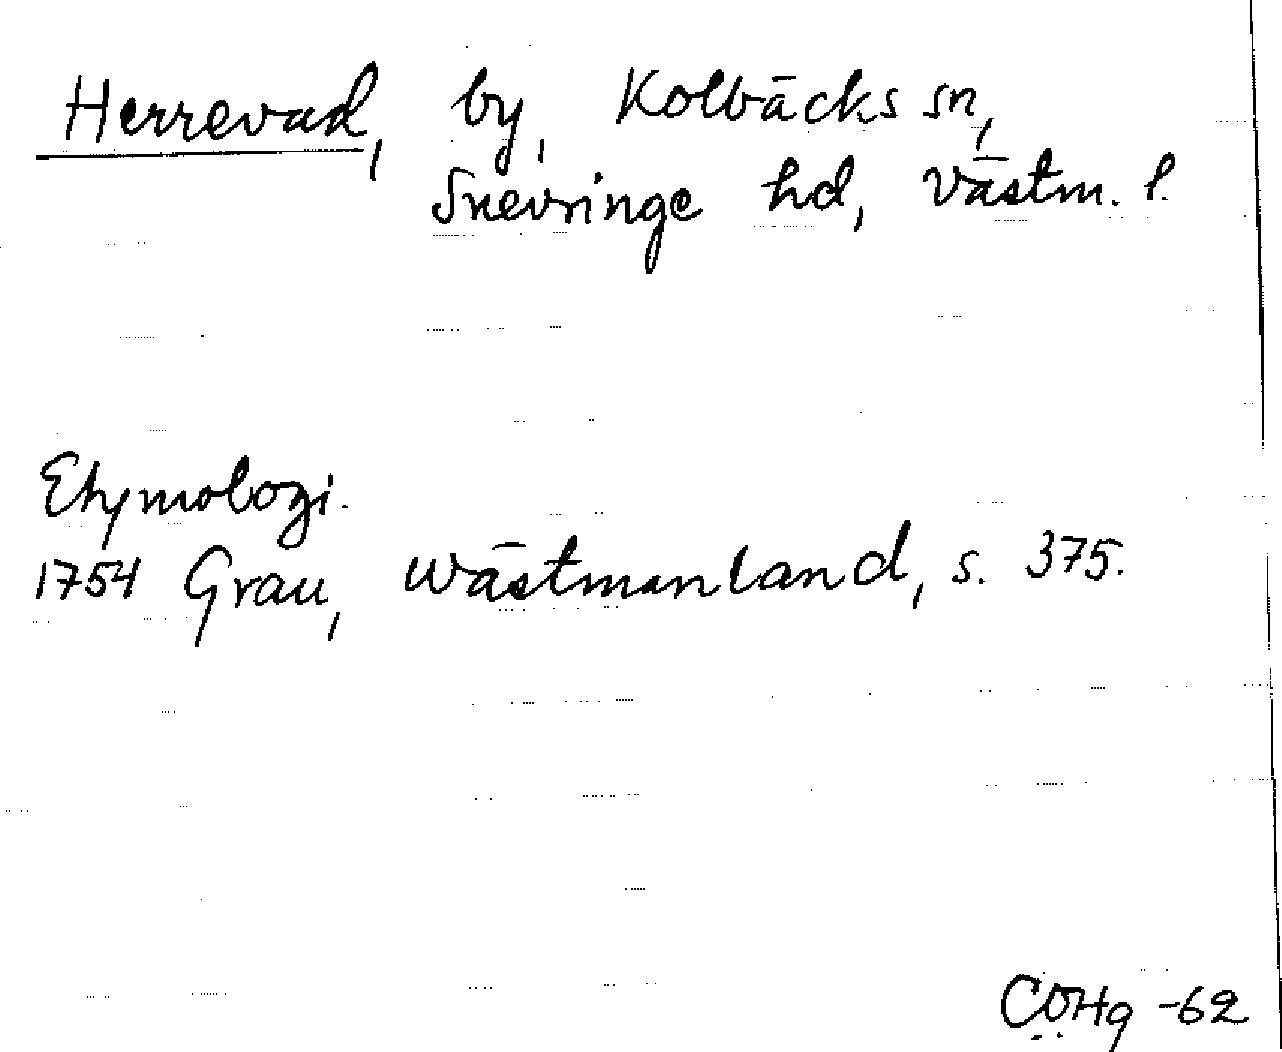 Herrevad, by, Kolbäcks sn,
Snevringe hd, Västm. l.
Etymologi.
1754 Grau, Wästmanland, s. 375.
CÖHg -62